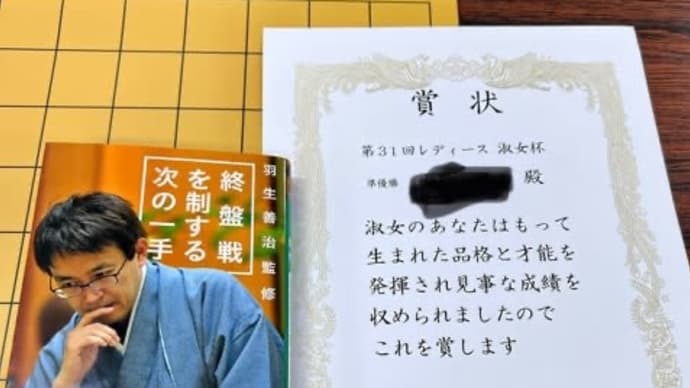 羽生善治監修
終盤戦
を制する
次の一手
賞状
第31回レディース 淑女杯
準優勝 殿
淑女のあなたはもって
生まれた品格と才能を
発揮され見事な成績を
収められましたので
これを賞します